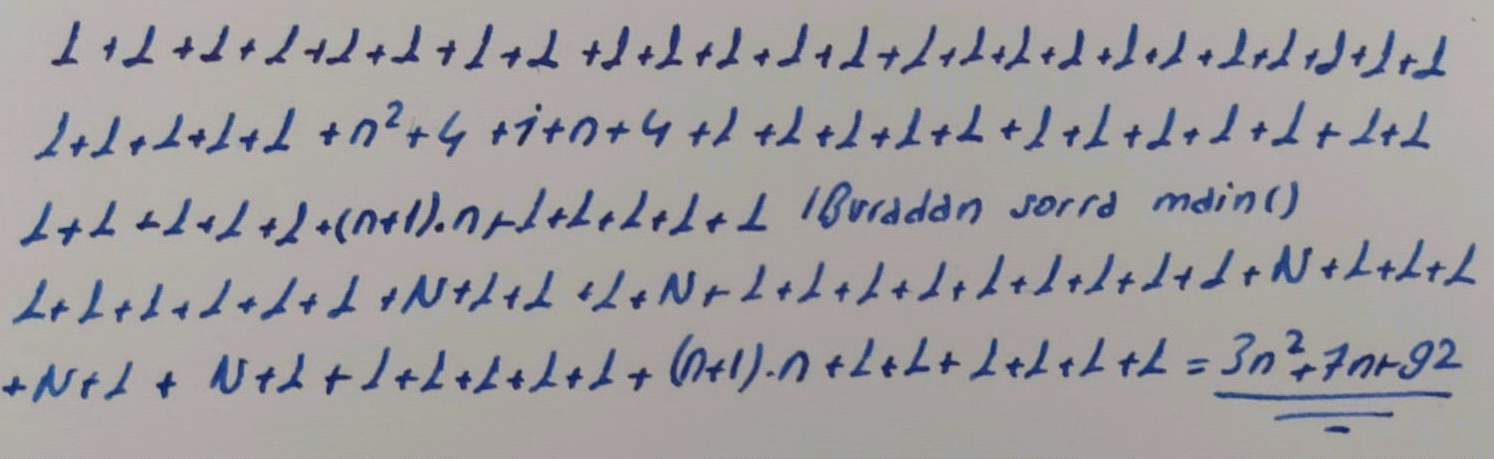 1+1+1+1+1+1+1+1+1+1+1+1+1+1+1+1+1+1+1+1+1+1+1+1
1+1+1+1+1+n²+4+i+n+4+1+1+1+1+1+1+1+1+1+1+1+1
1+1+1+1+1+(n+1).n+1+1+1+1+1 /Buradan sorra main()
1+1+1+1+1+1+N+1+1+1+N+1+1+1+1+1+1+1+1+1+N+1+1+1
+N+1+N+1+1+1+1+1+1+(n+1).n+1+1+1+1+1+1=3n²+7n+92